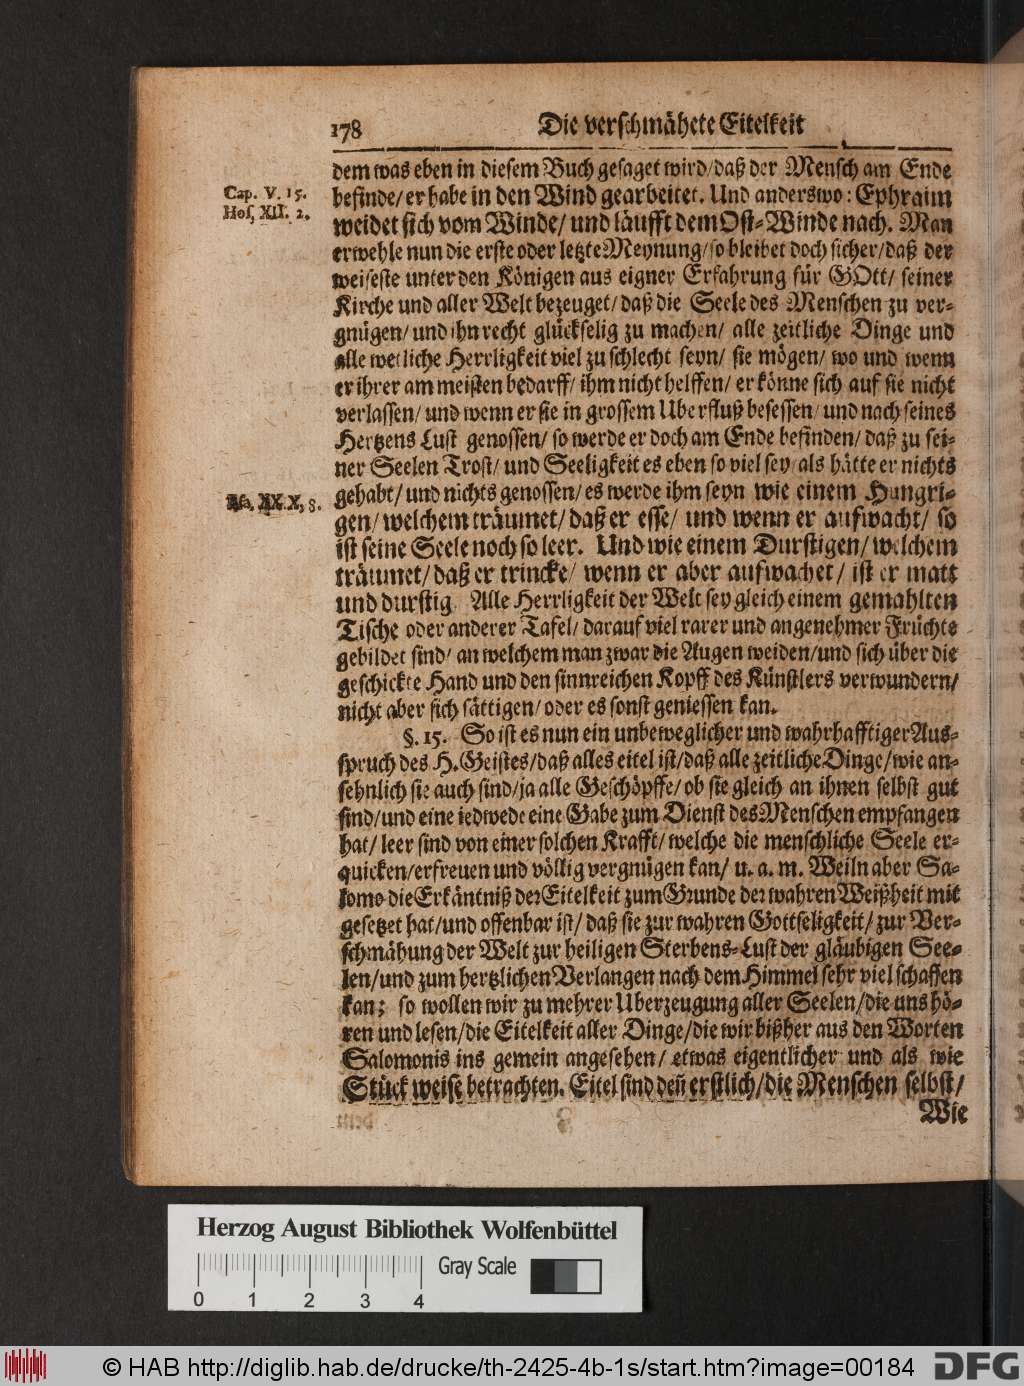 178
Die verschmähete Eitelkeit
dem was eben in diesem Buch gesaget wird/daß der Mensch am Ende
Cap. V. 15.
befinde/ er habe in den Wind gearbeitet. Und anderswo: Ephraim
Hos. XII. 2.
weidet sich vom Winde/ und läufft dem Ost-Winde nach. Man
erwehle nun die erste oder letzte Meynung/ so bleibet doch sicher/ daß der
weiseste unter den Königen aus eigner Erfahrung für GOtt/ seiner
Kirche und aller Welt bezeuget/ daß die Seele des Menschen zu ver-
gnügen/ und ihn recht glückselig zu machen/ alle zeitliche Dinge und
alle weltliche Herrligkeit viel zu schlecht seyn/ sie mögen/ wo und wenn
er ihrer am meisten bedarff/ ihm nicht helffen/ er könne sich auf sie nicht
verlassen/ und wenn er sie in grossem Uberfluß besessen/ und nach seines
Hertzens Lust genossen/ so werde er doch am Ende befinden/ daß zu sei-
ner Seelen Trost/ und Seeligkeit es eben so viel sey/ als hätte er nichts
XX.X, 8.
gehabt/ und nichts genossen/ es werde ihm seyn wie einem Hungri-
gen/ welchem träumet/ daß er esse/ und wenn er aufwacht/ so
ist seine Seele noch so leer. Und wie einem Durstigen/ welchem
träumet/ daß er trincke/ wenn er aber aufwachet/ ist er matt
und durstig. Alle Herrligkeit der Welt sey gleich einem gemahlten
Tische oder anderer Tafel/ darauf viel rarer und angenehmer Früchte
gebildet sind/ an welchem man zwar die Augen weiden/ und sich über die
geschickte Hand und den sinnreichen Kopff des Künstlers verwundern/
nicht aber sich sättigen/ oder es sonst geniessen kan.
§. 15. So ist es nun ein unbeweglicher und wahrhafftiger Aus-
spruch des H. Geistes/ daß alles eitel ist/ daß alle zeitliche Dinge/ wie an-
sehnlich sie auch sind/ ja alle Geschöpffe/ ob sie gleich an ihnen selbst gut
sind/ und eine iedwede eine Gabe zum Dienst des Menschen empfangen
hat/ leer sind von einer solchen Krafft/ welche die menschliche Seele er-
quicken/ erfreuen und völlig vergnügen kan/ u. a. m. Weiln aber Sa-
lomo die Erkäntniß der Eitelkeit zum Grunde der wahren Weißheit mit
gesetzet hat/ und offenbar ist/ daß sie zur wahren Gottseligkeit/ zur Ver-
schmähung der Welt zur heiligen Sterbens-Lust der gläubigen See-
len/ und zum hertzlichen Verlangen nach dem Himmel sehr viel schaffen
kan; so wollen wir zu mehrer Uberzeugung aller Seelen/ die uns hö-
ren und lesen/ die Eitelkeit aller Dinge/ die wir bißher aus den Worten
Salomonis ins gemein angesehen/ etwas eigentlicher und als wie
Stück weise betrachten. Eitel sind deñ erstlich/ die Menschen selbst/
Wie
Herzog August Bibliothek Wolfenbüttel
Gray Scale
0 1 2 3 4
© HAB http://diglib.hab.de/drucke/th-2425-4b-1s/start.htm?image=00184
DFG